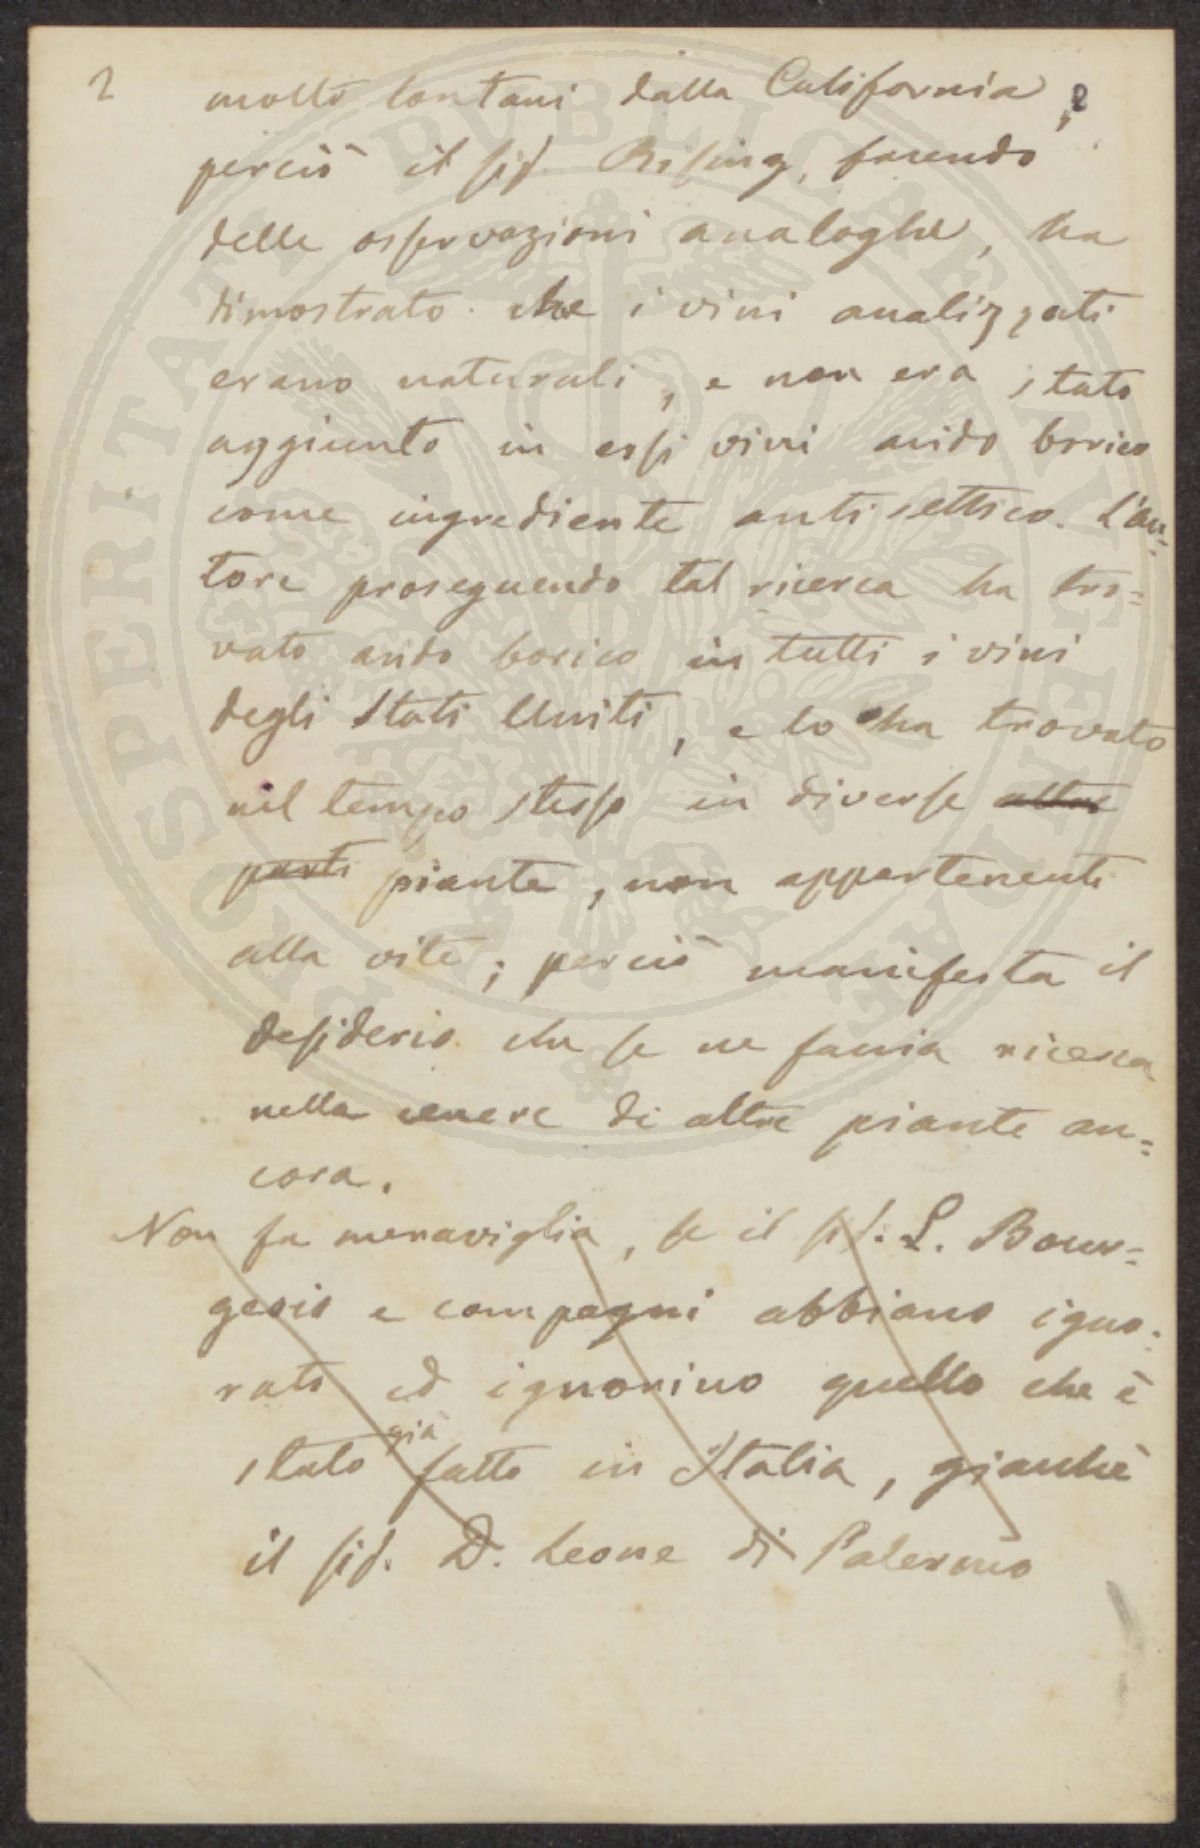 2
molto lontani dalla California, e
perciò il sig. Rising, facendo
delle osservazioni analoghe, ha
dimostrato che i vini analizzati
erano naturali, e non era stato
aggiunto in essi vini acido borico
come ingrediente antisettico. L'au=
tore proseguendo tal ricerca ha tro=
vato acido borico in tutti i vini
degli Stati Uniti, e lo ha trovato
nel tempo stesso in diverse altre
parti piante, non appartenenti
alla vite; perciò manifesta il
desiderio che se ne faccia ricerca
nella cenere di altre piante an=
cora.
Non fa meraviglia, se il sig. L. Bour=
geois e compagni abbiano igno=
rato ed ignorino quello che è
stato già fatto in Italia, giacchè
il sig. D. Leone di Palermo
PROSPERITATI PVBLICAE AVGENDAE